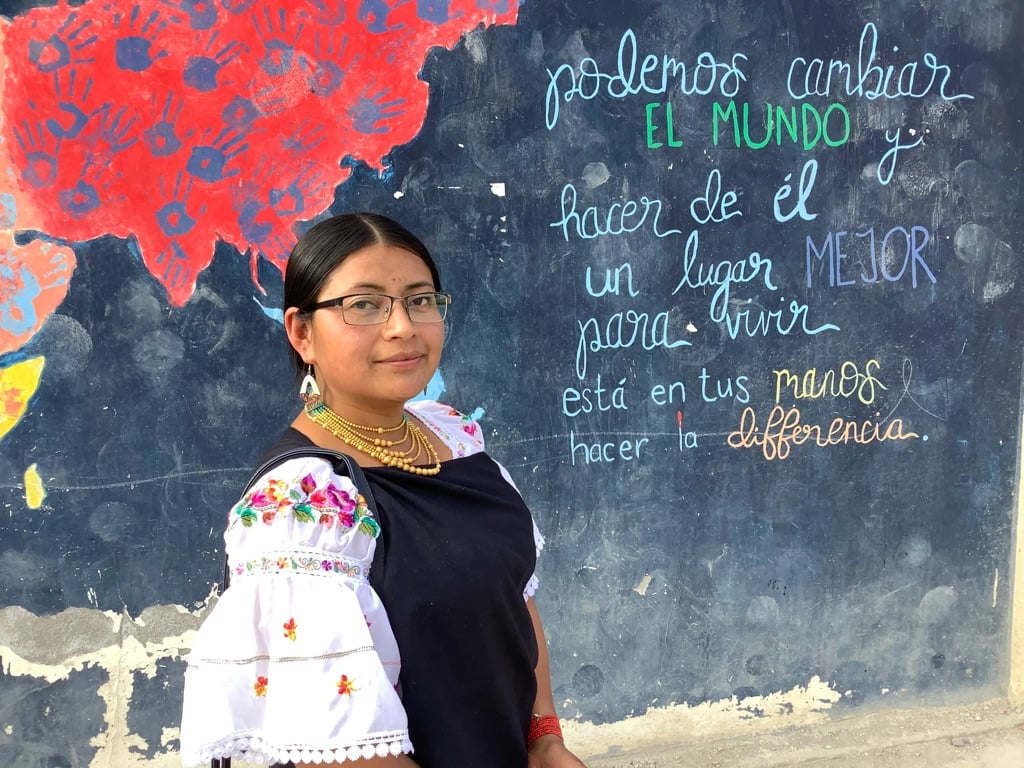 podemos cambiar
EL MUNDO y
hacer de él
un lugar MEJOR
para vivir
está en tus manos
hacer la differencia.